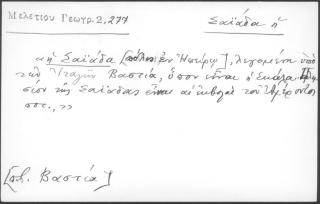 Μελετίου Γεωγρ. 2, 277
Σαϊάδα ἡ
«ἡ Σαϊάδα [πόλις ἐν Ἠπείρῳ], λεγομένη ὑπὸ
τῶν Ἰταλῶν Βαστία, ὅπου εἶναι ἡ Σκάλα
σίον τῆς Σαϊάδας εἶναι αἱ ἐκβολαὶ τοῦ
ποτ.,»
[πβ. Βαστία]